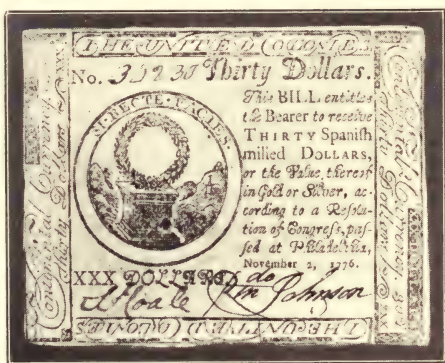 THE UNITED COLONIES
No. Thirty Dollars.
This BILL entitles
the Bearer to receive
THIRTY Spanish
milled DOLLARS,
or the Value thereof
in Gold or Silver, ac-
cording to a Resolu-
tion of Congress, pas-
sed at Philadelphia,
November 2, 1776.
SI RECTE FACIES.
XXX DOLLARS
Johnson
THE UNITED COLONIES
Continental Currency
Thirty Dollars
Continental Currency
Thirty Dollars
XXX